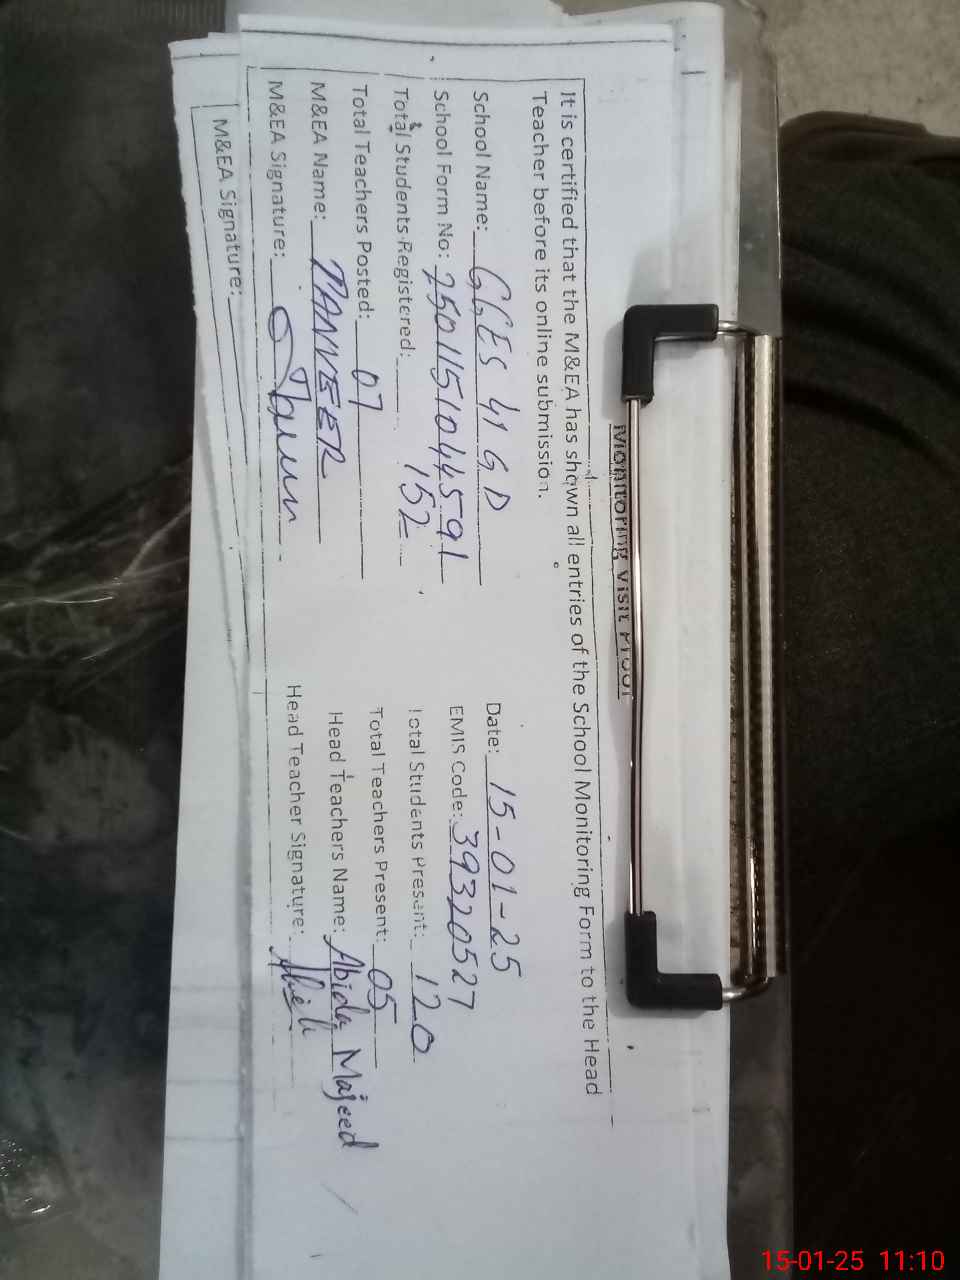 Monitoring Visit Proof
It is certified that the M&EA has shown all entries of the School Monitoring Form to the Head
Teacher before its online submission.
School Name: GGES 41 GD Date: 15-01-25
School Form No: 25011510445591 EMIS Code: 39320527
Total Students Registered: 152 Total Students Present: 120
Total Teachers Posted: 07 Total Teachers Present: 05
M&EA Name: TANVEER Head Teachers Name: Abida Majeed
M&EA Signature: Head Teacher Signature:
M&EA Signature:
15-01-25 11:10